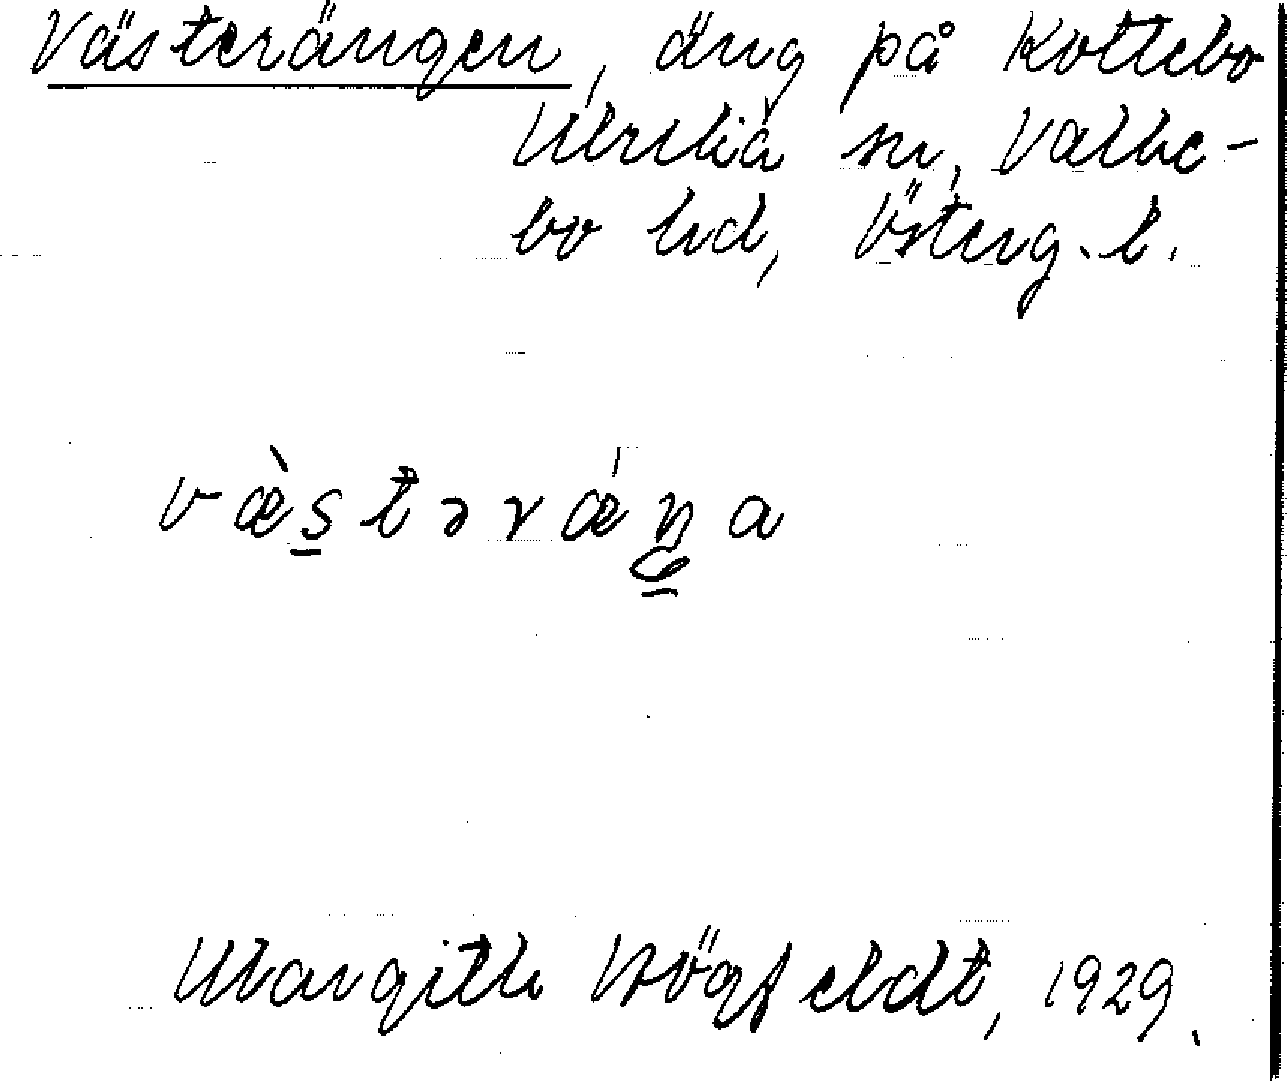 Västerängen, äng på Kottebo
Ulrika sn, Valke-
bo hd, Österg. l.
væ̀stərǽŋa
Margith Högfeldt, 1929.